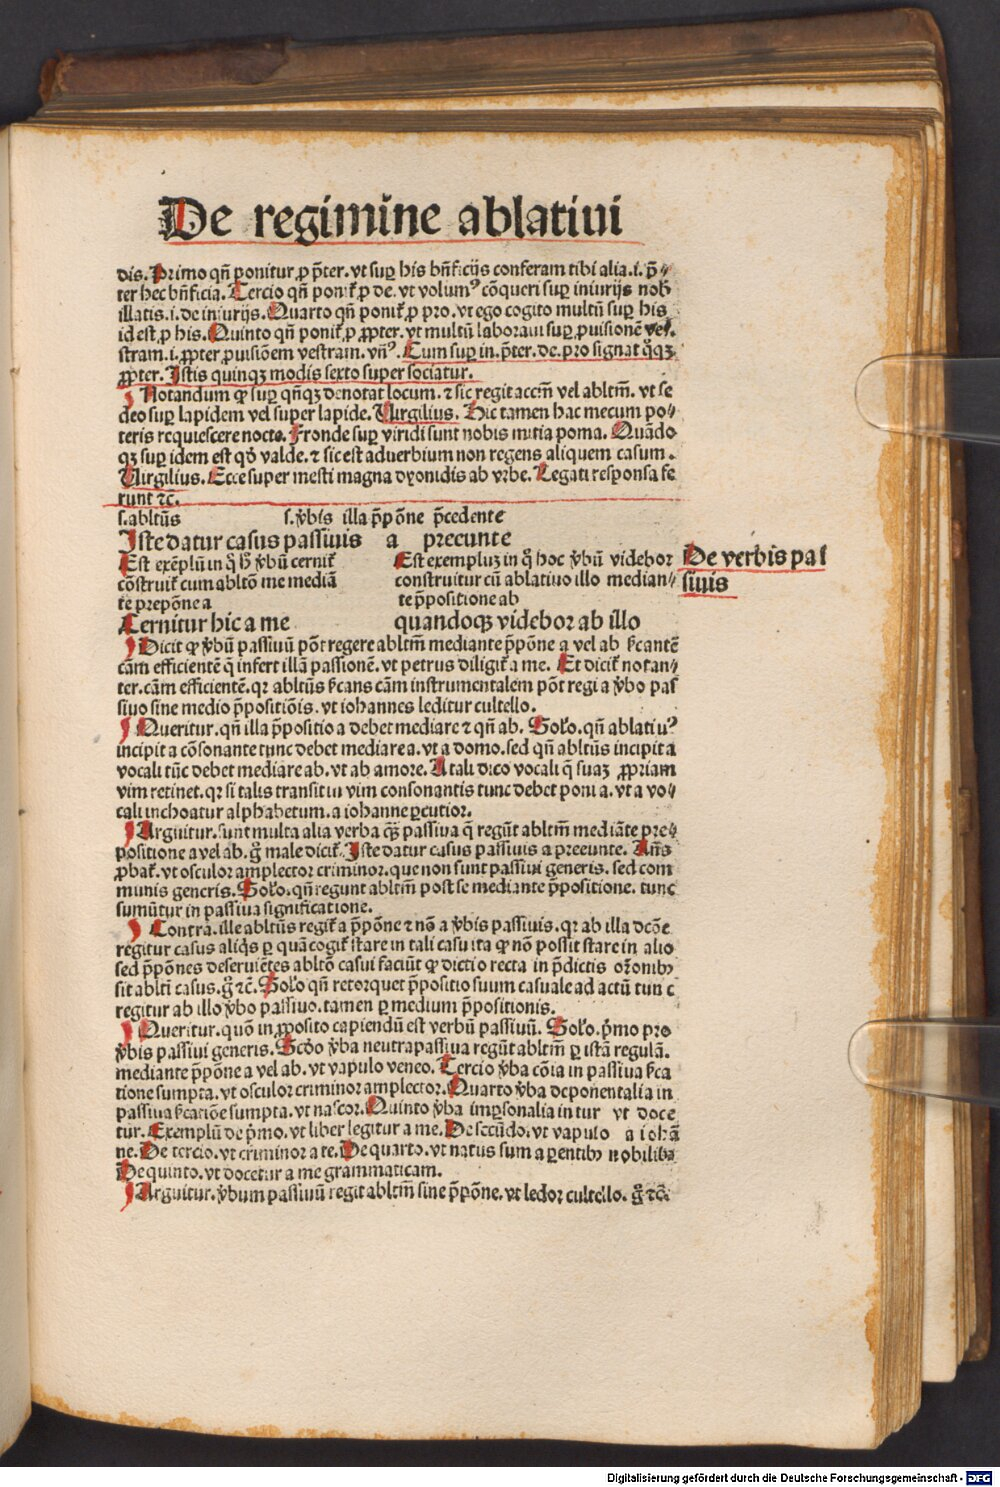 De regimine ablatiui
dis. Primo qn̄ ponitur ꝓ p̄ter. vt suꝑ his bn̄ficijs conferam tibi alia .i. p̄⸗
ter hec bn̄ficia. Tercio qn̄ poniť ꝓ de. vt volumꝰ cōqueri suꝑ iniurijs nob̄
illatis .i. de iniurijs. Quarto qn̄ poniť ꝓ pro. vt ego cogito multū suꝑ his
id est ꝓ his. Quinto qn̄ poniť ꝓ ꝓpter. vt multū laboraui suꝑ ꝓuisionē ve⸗
stram .i. ꝓpter ꝓuisiōem vestram. vn̄ꝰ. Cum suꝑ in. p̄ter. de. pro signat q̊qꝫ
ꝓpter. Istis quinqꝫ modis sexto super sociatur.
Notandum ꝙ suꝑ qn̄qꝫ denotat locum. ⁊ sic regit accm̄ vel abltm̄. vt se
deo suꝑ lapidem vel super lapide. Virgilius. Hic tamen hac mecum po⸗
teris requiescere nocte. Fronde suꝑ viridi sunt nobis mitia poma. Quādo
qꝫ suꝑ idem est qd̓ valde. ⁊ sic est aduerbium non regens aliquem casum.
Virgilius. Ecce super mesti magna dyonidis ab vrbe. Legati responsa fe
runt ⁊c.
s. abltūs s. v̓bis illa p̄pōne p̄cedente
Iste datur casus passiuis a preeunte
Est exēplū in q̊ h̓ v̓bū cerniť
cōstruiť cum abltō me mediā
te prepōne a
Est exempluꝫ in q̊ hoc v̓bū videbor
construitur cū ablatiuo illo median⸗
te p̄positione ab
De verbis pas
siuis
Cernitur hic a me quandoqꝫ videbor ab illo
Dicit ꝙ v̓bū passiuū pōt regere abltm̄ mediante p̄pōne a vel ab ſcantē
cām efficientē q̄ infert illā passionē. vt petrus diligiť a me. Et diciť notan⸗
ter. cām efficientē. qꝛ abltūs ſcans cām instrumentalem pōt regi a v̓bo pas
siuo sine medio p̄positiōis. vt iohannes leditur cultello.
Queritur. qn̄ illa p̄positio a debet mediare ⁊ qn̄ ab. Solo̓. qn̄ ablatiuꝰ
incipit a cōsonante tunc debet mediare a. vt a domo. sed qn̄ abltūs incipit a
vocali tūc debet mediare ab. vt ab amore. A tali dico vocali q̄ suaꝫ ꝓpriam
vim retinet. qꝛ si talis transit in vim consonantis tunc debet poni a. vt a vo⸗
cali inchoatur alphabetum. a iohanne ꝑcutior.
Arguitur. sunt multa alia verba qꝫ passiua q̄ regūt abltm̄ mediāte pre⸗
positione a vel ab. g̊ male diciť. Iste datur casus passiuis a preeunte. Ans̄
ꝓbať. vt osculor amplector criminor. que non sunt passiui generis. sed com
munis generis. Solo̓. qn̄ regunt abltm̄ post se mediante p̄positione. tunc
sumūtur in passiua significatione.
Contra. ille abltūs regiť a p̄pōne ⁊ nō a v̓bis passiuis. qꝛ ab illa dcōe
regitur casus aliq̊s ꝑ quā cogiť stare in tali casu ita ꝙ nō possit stare in alio
sed p̄pōnes deseruiētes abltō casui faciūt ꝙ dictio recta in p̄dictis or̄onibꝫ
sit ablti casus. g̊ ⁊c̄. Solo̓ qn̄ retorquet p̄positio suum casuale ad actū tunc
regitur ab illo v̓bo passiuo. tamen ꝑ medium p̄positionis.
Queritur. quō in ꝓposito capiendū est verbū passiuū. Solo̓. pͥmo pro
v̓bis passiui generis. Scdo̓ v̓ba neutrapassiua regūt abltm̄ ꝑ istā regulā.
mediante p̄pōne a vel ab. vt vapulo veneo. Tercio v̓ba cōia in passiua ſca
tione sumpta. vt osculor criminor amplector. Quarto v̓ba deponentalia in
passiua ſcatiōe sumpta. vt nascor. Quinto v̓ba imꝑsonalia in tur vt doce
tur. Exemplū de pͥmo. vt liber legitur a me. De secūdo. vt vapulo a iohā
ne. De tercio. vt criminor a te. De quarto. vt natus sum a ꝑentibꝫ nobilibꝫ
De quinto. vt docetur a me grammaticam.
Arguitur. v̓bum passiuū regit abltm̄ sine p̄pōne. vt ledor cultello. g̊ ⁊c̄.
Digitalisierung gefördert durch die Deutsche Forschungsgemeinschaft - DFG